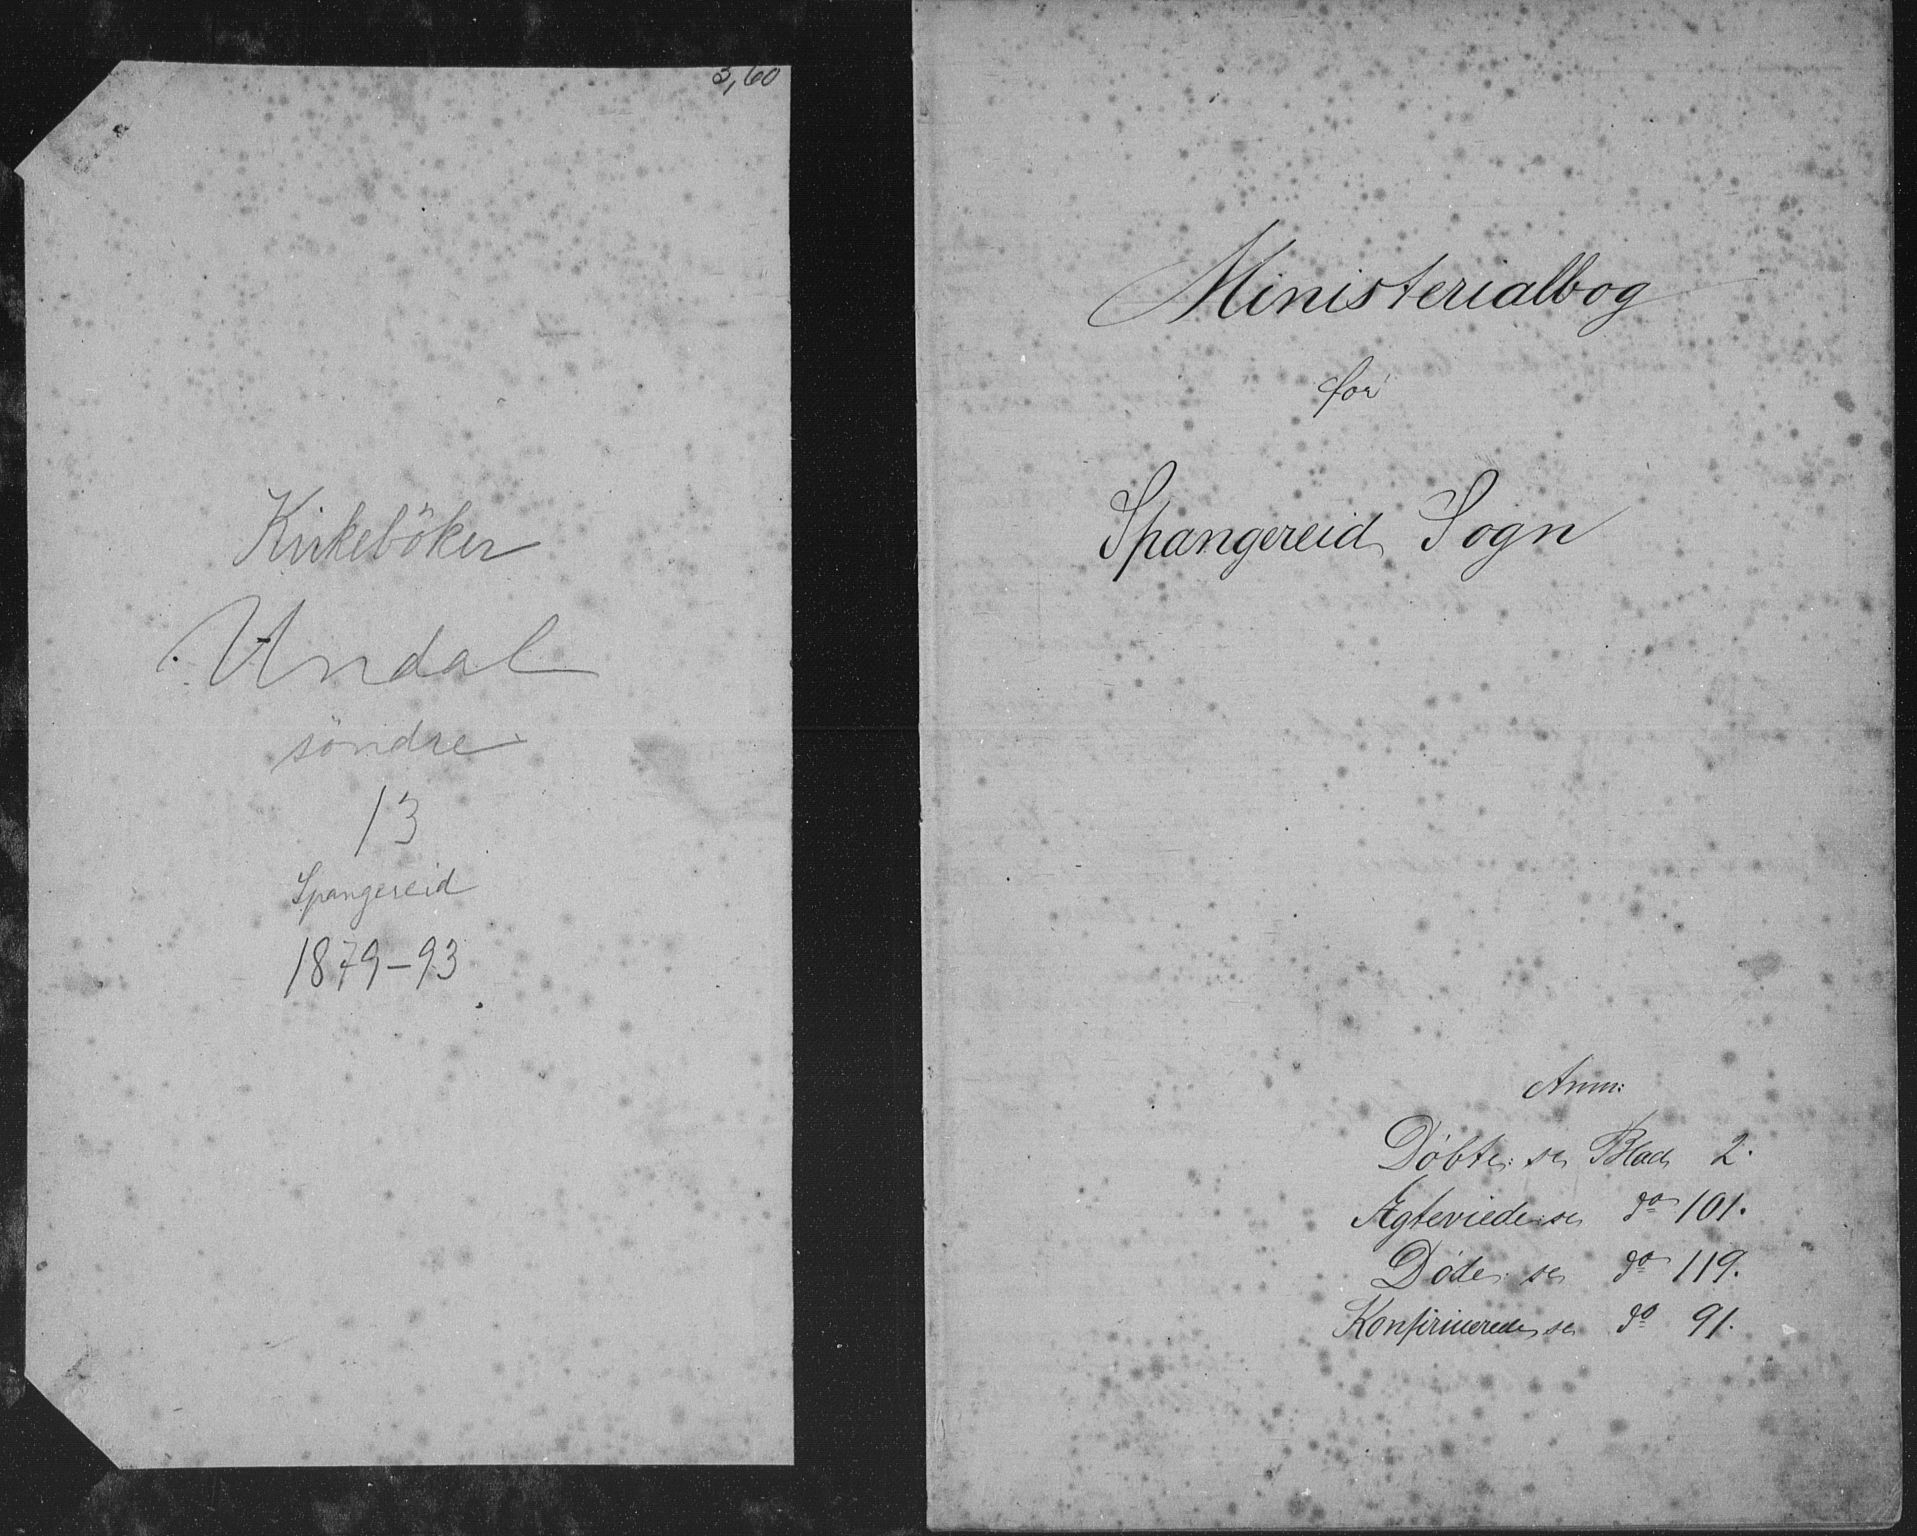 3,60
Kirkeböker
Undal
söndre
13
Spangereid
1879-93
Ministerialbog
for
Spangereid Sogn
Anm:
Døbte: se Blad 2.
Ægteviede: se do 101.
Døde: se do 119.
Konfirmerede se do 91.